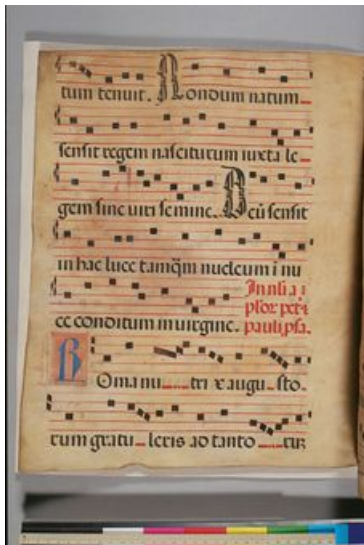 tum tenuit. Nondum natum
sensit regem nasciturum iuxta le
gem sine uiri semine. Decũ sensit
in hac luce tamq̃m nucleum i nu
In nli a i
plor pet i
ce conditum in uirgine. pauli psa.
Roma nu tri x augu sto.
rum gratu leris ad tanto rũ